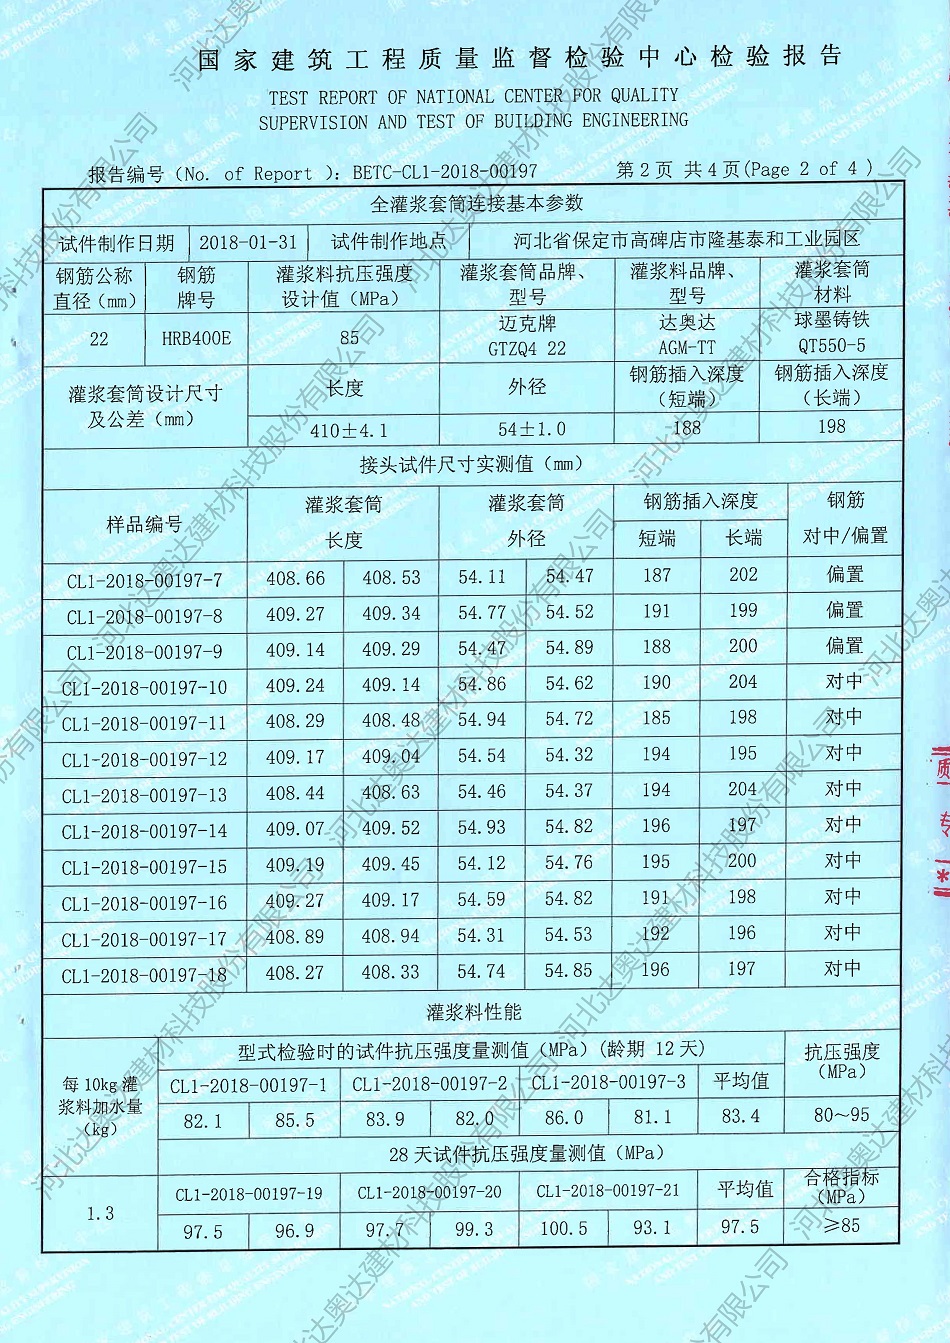 国家建筑工程质量监督检验中心检验报告
TEST REPORT OF NATIONAL CENTER FOR QUALITY
SUPERVISION AND TEST OF BUILDING ENGINEERING
报告编号（No. of Report ）: BETC-CL1-2018-00197 第 2 页 共 4 页(Page 2 of 4 )
全灌浆套筒连接基本参数
试件制作日期 2018-01-31 试件制作地点 河北省保定市高碑店市隆基泰和工业园区
钢筋公称直径（mm） 钢筋牌号 灌浆料抗压强度设计值（MPa） 灌浆套筒品牌、型号 灌浆料品牌、型号 灌浆套筒材料
22 HRB400E 85 迈克牌 GTZQ4 22 达奥达 AGM-TT 球墨铸铁 QT550-5
灌浆套筒设计尺寸及公差（mm） 长度 外径 钢筋插入深度（短端） 钢筋插入深度（长端）
410±4.1 54±1.0 188 198
接头试件尺寸实测值（mm）
样品编号 灌浆套筒长度 灌浆套筒外径 钢筋插入深度 钢筋对中/偏置
短端 长端
CL1-2018-00197-7 408.66 408.53 54.11 54.47 187 202 偏置
CL1-2018-00197-8 409.27 409.34 54.77 54.52 191 199 偏置
CL1-2018-00197-9 409.14 409.29 54.47 54.89 188 200 偏置
CL1-2018-00197-10 409.24 409.14 54.86 54.62 190 204 对中
CL1-2018-00197-11 408.29 408.48 54.94 54.72 185 198 对中
CL1-2018-00197-12 409.17 409.04 54.54 54.32 194 195 对中
CL1-2018-00197-13 408.44 408.63 54.46 54.37 194 204 对中
CL1-2018-00197-14 409.07 409.52 54.93 54.82 196 197 对中
CL1-2018-00197-15 409.19 409.45 54.12 54.76 195 200 对中
CL1-2018-00197-16 409.27 409.17 54.59 54.82 191 198 对中
CL1-2018-00197-17 408.89 408.94 54.31 54.53 192 196 对中
CL1-2018-00197-18 408.27 408.33 54.74 54.85 196 197 对中
灌浆料性能
每 10kg 灌浆料加水量（kg） 型式检验时的试件抗压强度量测值（MPa）(龄期 12 天) 抗压强度（MPa）
CL1-2018-00197-1 CL1-2018-00197-2 CL1-2018-00197-3 平均值
82.1 85.5 83.9 82.0 86.0 81.1 83.4 80～95
28 天试件抗压强度量测值（MPa）
1.3 CL1-2018-00197-19 CL1-2018-00197-20 CL1-2018-00197-21 平均值 合格指标（MPa）
97.5 96.9 97.7 99.3 100.5 93.1 97.5 ≥85
河北达奥达建材科技股份有限公司
质
专